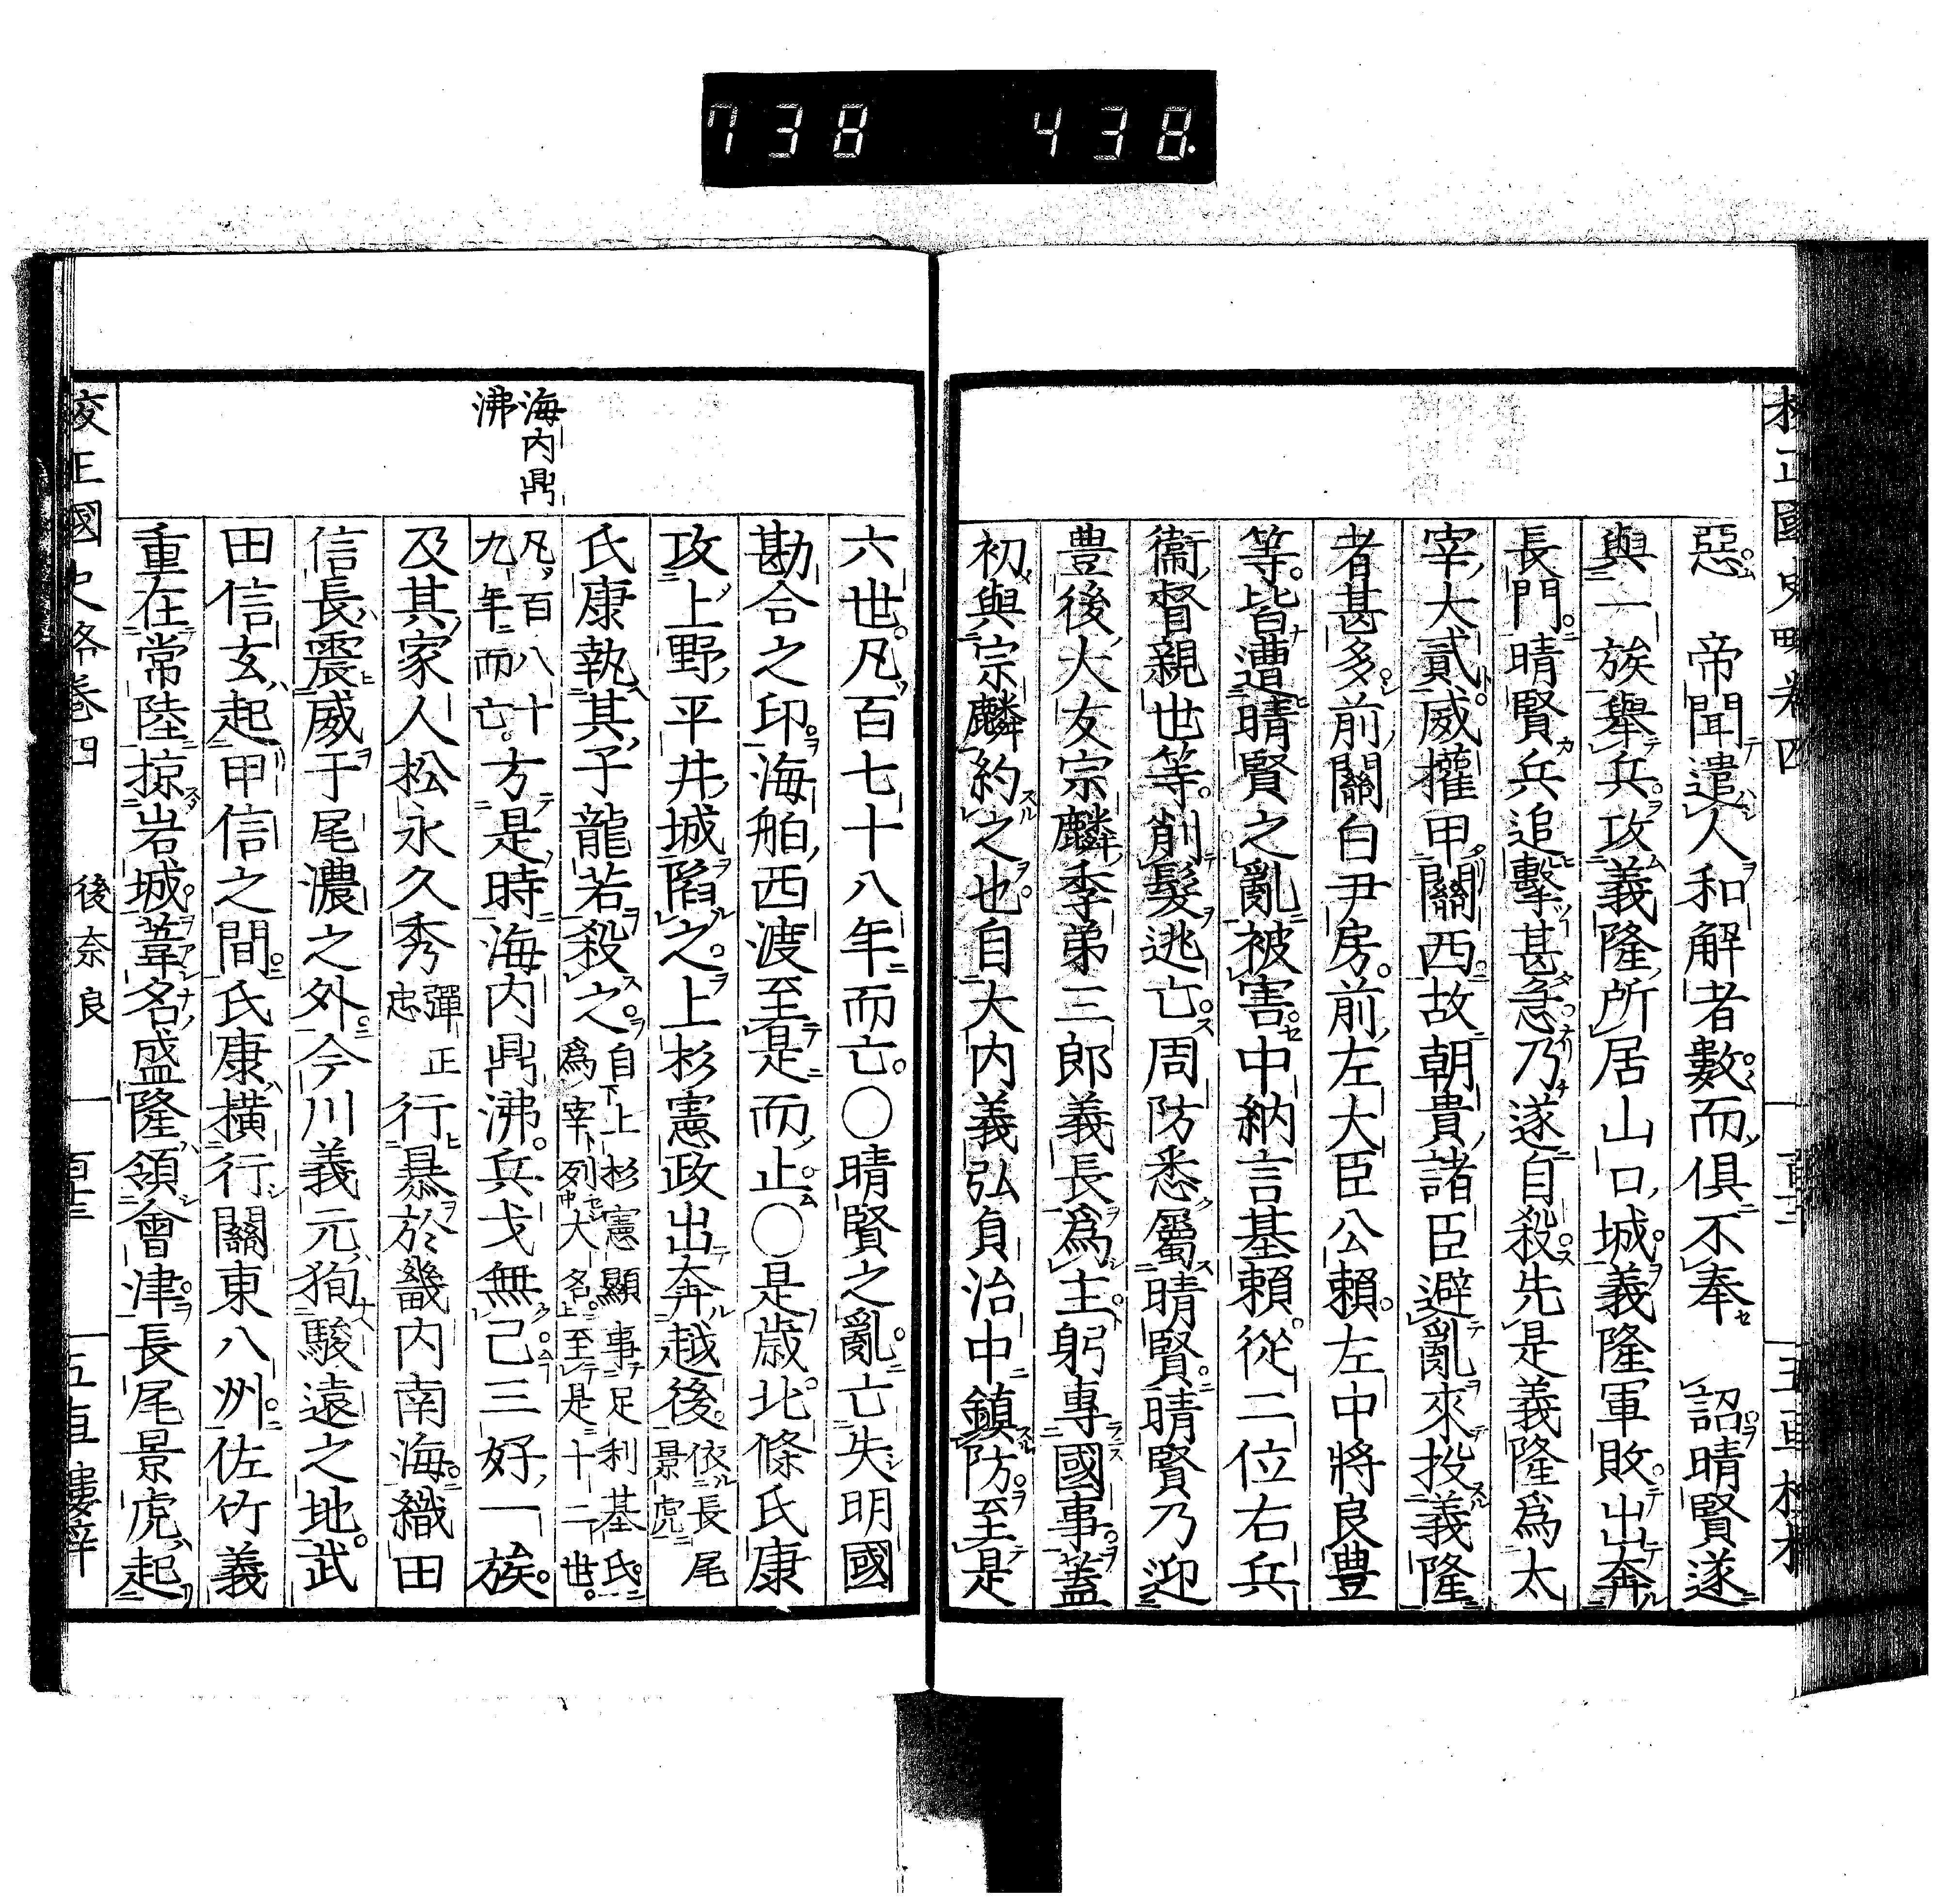 738 438.
校正國史略卷四
惡　帝聞遣人和解者數而俱不奉　詔晴賢遂
與一族擧兵攻義隆所居山口城義隆軍敗出奔
長門晴賢兵追擊甚急乃遂自殺先是義隆爲太
宰大貳威權甲關西故朝貴諸臣避亂來投義隆
者甚多前關白尹房前左大臣公賴左中將良豊
等皆遭晴賢之亂被害中納言基賴從二位右兵
衞督親世等削髮逃亡周防悉屬晴賢晴賢乃迎
豊後大友宗麟季弟三郎義長爲主躬專國事蓋
初與宗麟約之也自大内義弘負治中鎮防至是
海内鼎
沸
六世凡百七十八年而亡○晴賢之亂亡失明國
勘合之印海舶西渡至是而止○是歳北條氏康
攻上野平井城陷之上杉憲政出奔越後依長尾
景虎
氏康執其子龍若殺之自上杉憲顯事足利基氏
爲宰列大名至是十二世
凡百八十
九年而亡方是時海内鼎沸兵戈無已三好一族
及其家人松永久秀彈正
忠行暴於畿内南海織田
信長震威于尾濃之外今川義元狥駿遠之地武
田信玄起甲信之間氏康橫行關東八州佐竹義
重在常陸掠岩城葦名盛隆領會津長尾景虎起
校正國史略卷四　後奈良　百三　五車樓梓